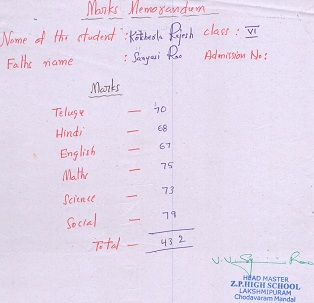 Marks Memorandum
Name of the student : Rajesh class : VI
Faths name : Sanyasi Rao Admission No:
Marks
Telugu — 70
Hindi — 68
English — 67
Maths — 75
Science — 73
Social — 79
Total — 432
HEAD MASTER
Z.P.HIGH SCHOOL
LAKSHMIPURAM
Chodavaram Mandal